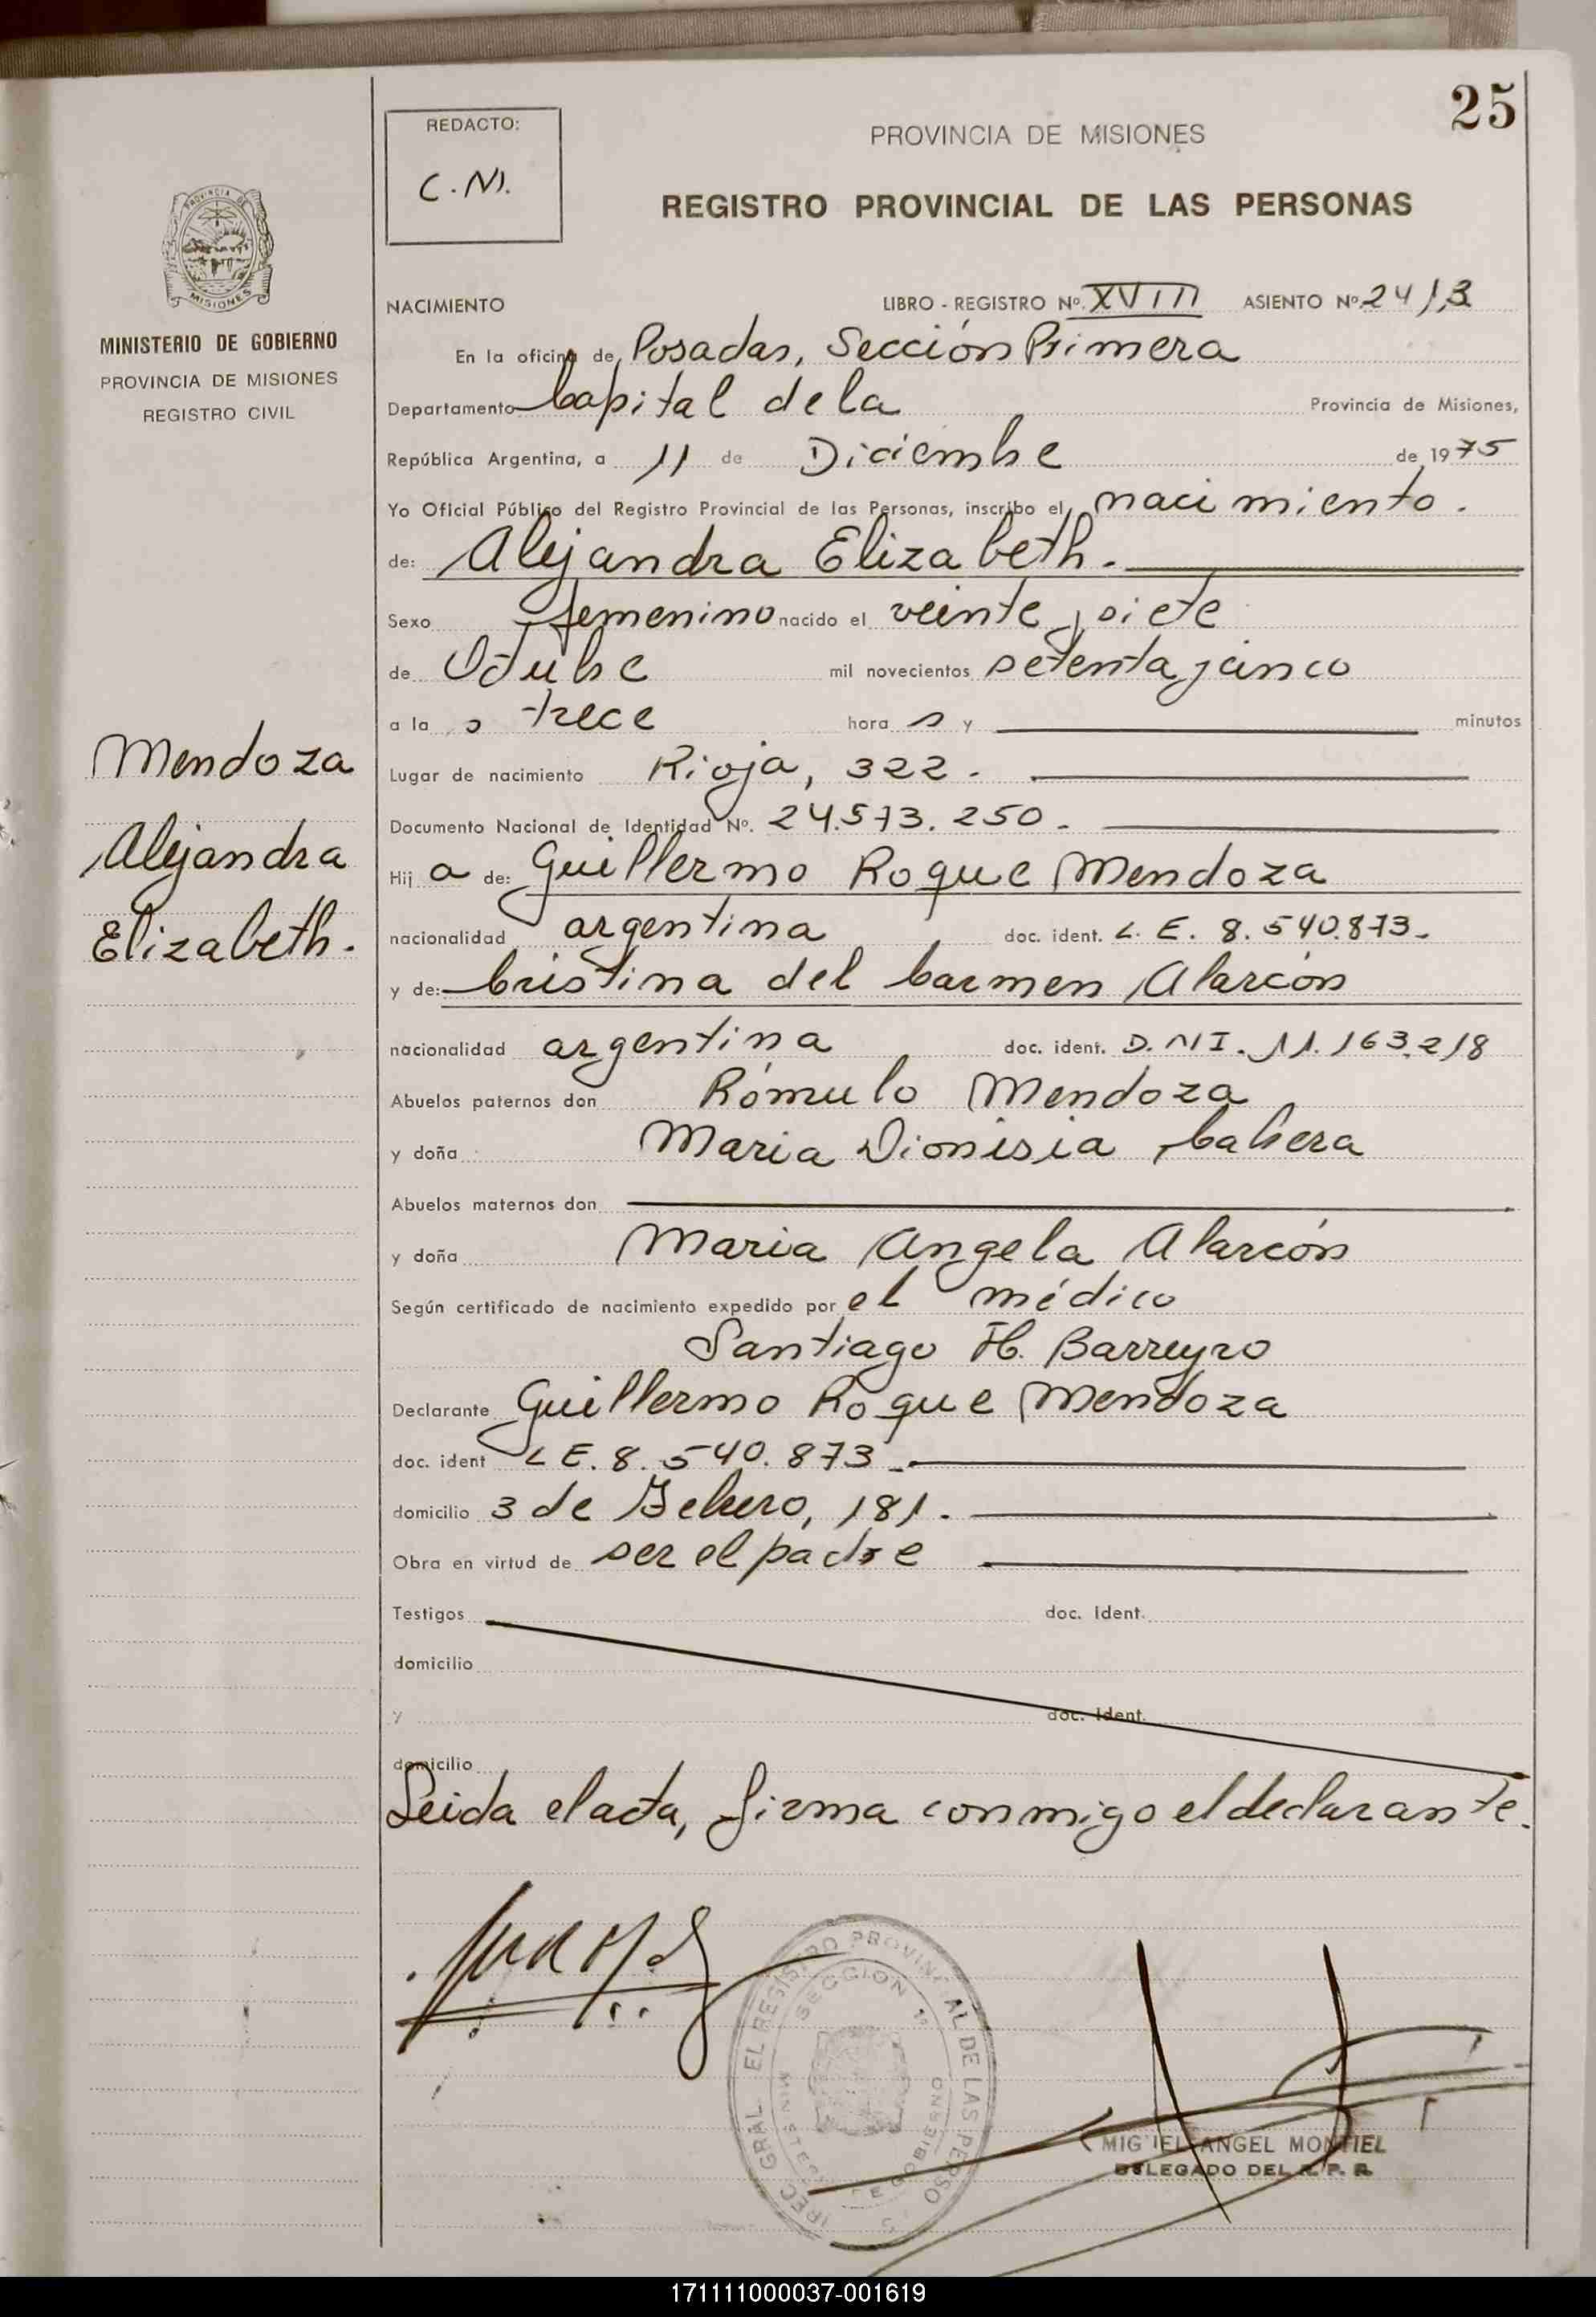 25
REDACTO:
C.M.
PROVINCIA DE MISIONES
REGISTRO PROVINCIAL DE LAS PERSONAS
PROVINCIA DE
MISIONES
MINISTERIO DE GOBIERNO
PROVINCIA DE MISIONES
REGISTRO CIVIL
Mendoza
Alejandra
Elizabeth.
NACIMIENTO LIBRO - REGISTRO Nº. XVIII ASIENTO Nº. 2413
En la oficina de Posadas, Sección Primera
Departamento Capital de la Provincia de Misiones,
República Argentina, a 11 de Diciembre de 1975
Yo Oficial Público del Registro Provincial de las Personas, inscribo el nacimiento.
de: Alejandra Elizabeth.
Sexo femenino nacido el veinte y siete
de Octubre mil novecientos setenta y cinco
a la s trece hora s y minutos
Lugar de nacimiento Rioja, 322.
Documento Nacional de Identidad Nº. 24.573.250.
Hij a de: Guillermo Roque Mendoza
nacionalidad argentina doc. ident. L.E. 8.540.873.
y de: Cristina del Carmen Alarcón
nacionalidad argentina doc. ident. D.NI. 11.163.218
Abuelos paternos don Rómulo Mendoza
y doña Maria Dionisia Cabrera
Abuelos maternos don
y doña Maria Angela Alarcón
Según certificado de nacimiento expedido por el médico
Santiago H. Barreyro
Declarante Guillermo Roque Mendoza
doc. ident L E. 8.540.873.
domicilio 3 de Febrero, 181.
Obra en virtud de ser el padre
Testigos doc. Ident.
domicilio
y doc. Ident.
domicilio
Leida el acta, firma conmigo el declarante.
SECCION 1º
MIGUEL ANGEL MONTIEL
DELEGADO DEL R. P. P.
171111000037-001619